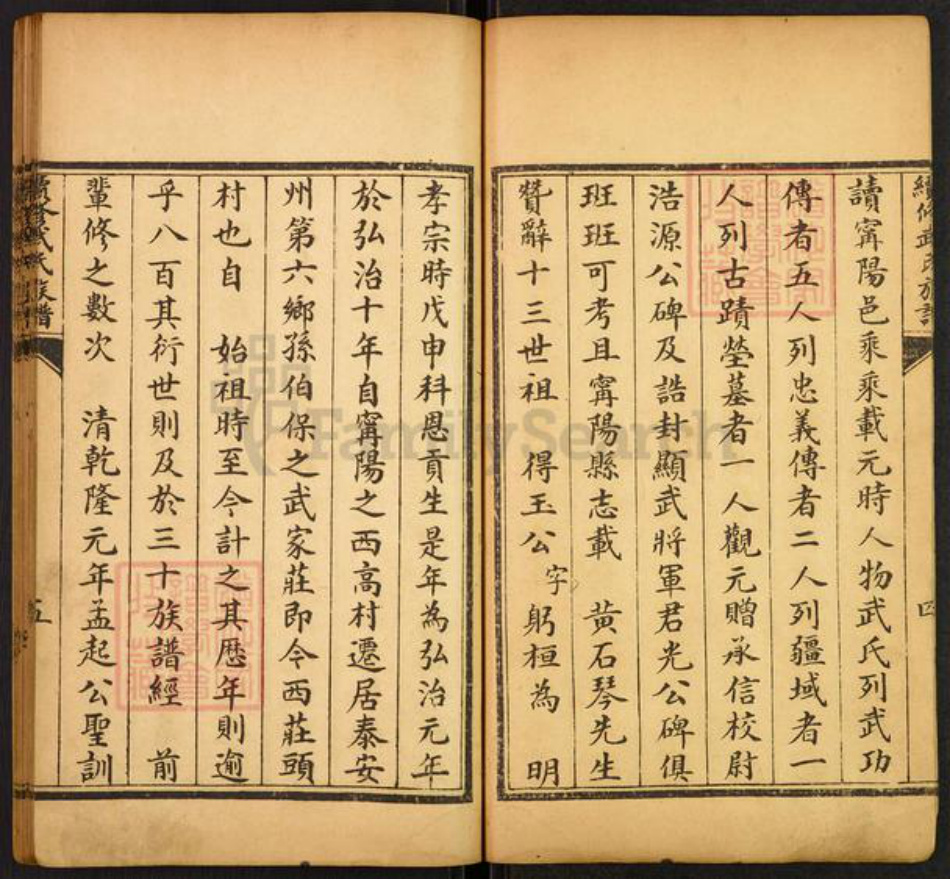 續修武氏族譜
四
讀甯陽邑乘乘載元時人物武氏列武功
傳者五人列忠義傳者二人列疆域者一
人列古蹟塋墓者一人觀元贈承信校尉
浩源公碑及誥封顯武將軍君光公碑俱
班班可考且甯陽縣志載 黃石琴先生
贊辭十三世祖 得玉公 字躬桓為 明
孝宗時戊申科恩貢生是年為弘治元年
於弘治十年自甯陽之西高村遷居泰安
州第六鄉孫伯保之武家莊即今西莊頭
村也自 始祖時至今計之其歷年則逾
乎八百其衍世則及於三十族譜經 前
輩修之數次 清乾隆元年孟起公聖訓
續修武氏族譜
五
FamilySearch